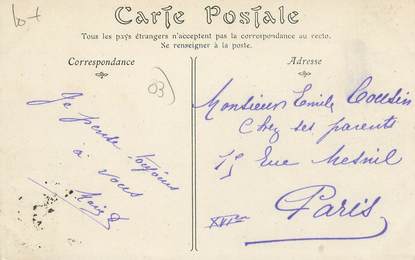 lot
Carte Postale
Tous les pays étrangers n'acceptent pas la correspondance au recto.
Se renseigner à la poste.
Correspondance
Adresse
03
Je pense toujours
à vous
Monsieur Emile Cousin
Chez ses parents
15 Rue Mesnil
Paris
XVIem